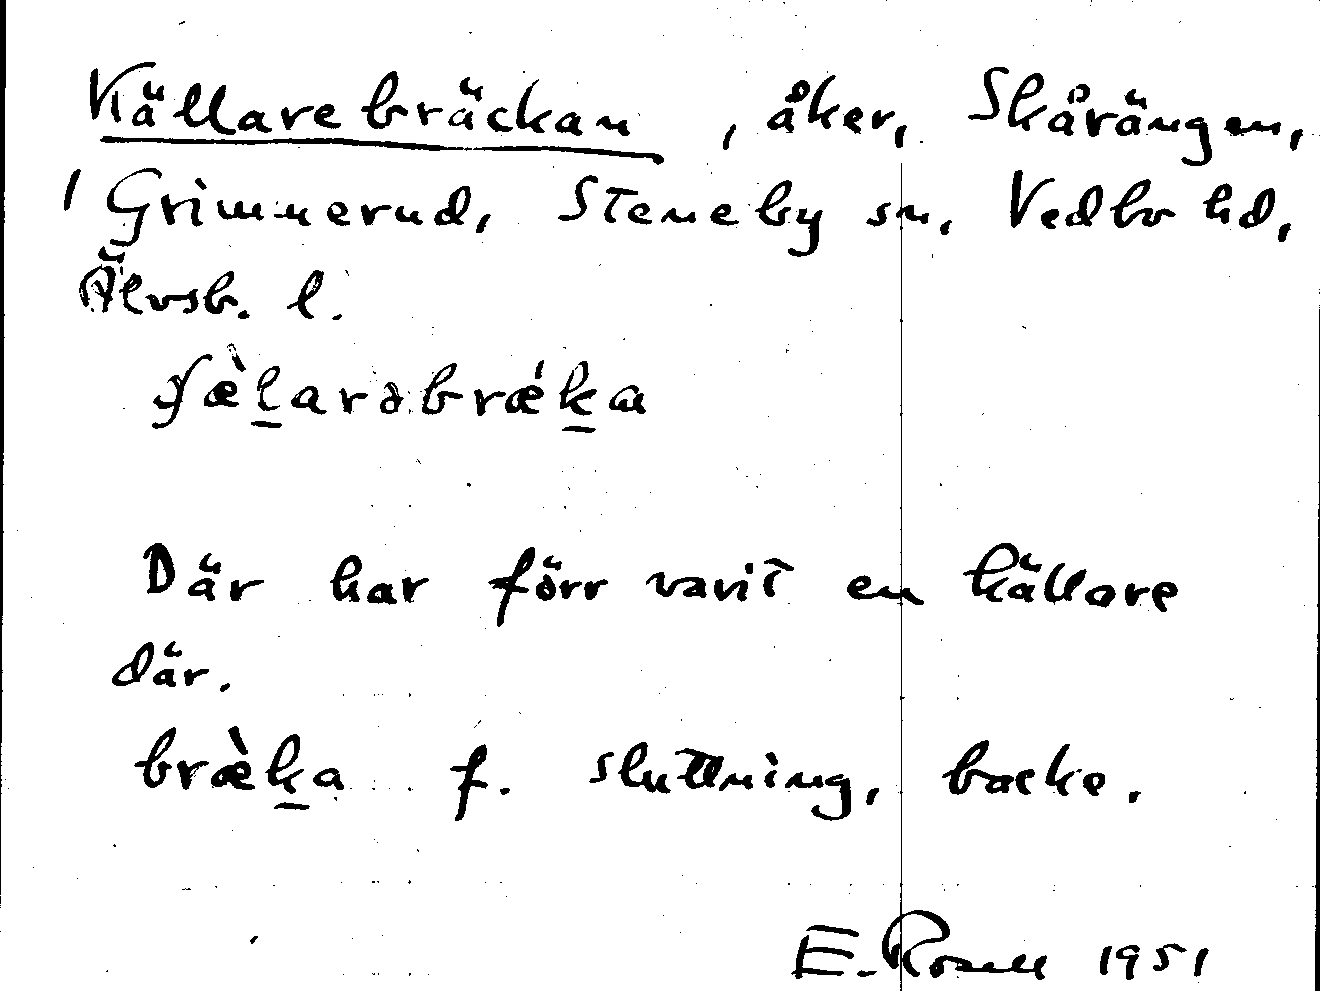 Källarebräckan, åker, Skårängen,
1 Grimnerud, Steneby sn, Vedbo hd,
Älvsb. l.
Där har förr varit en källare
där.
bræ̀k̲a f. sluttning, backe.
E. Rosell 1951